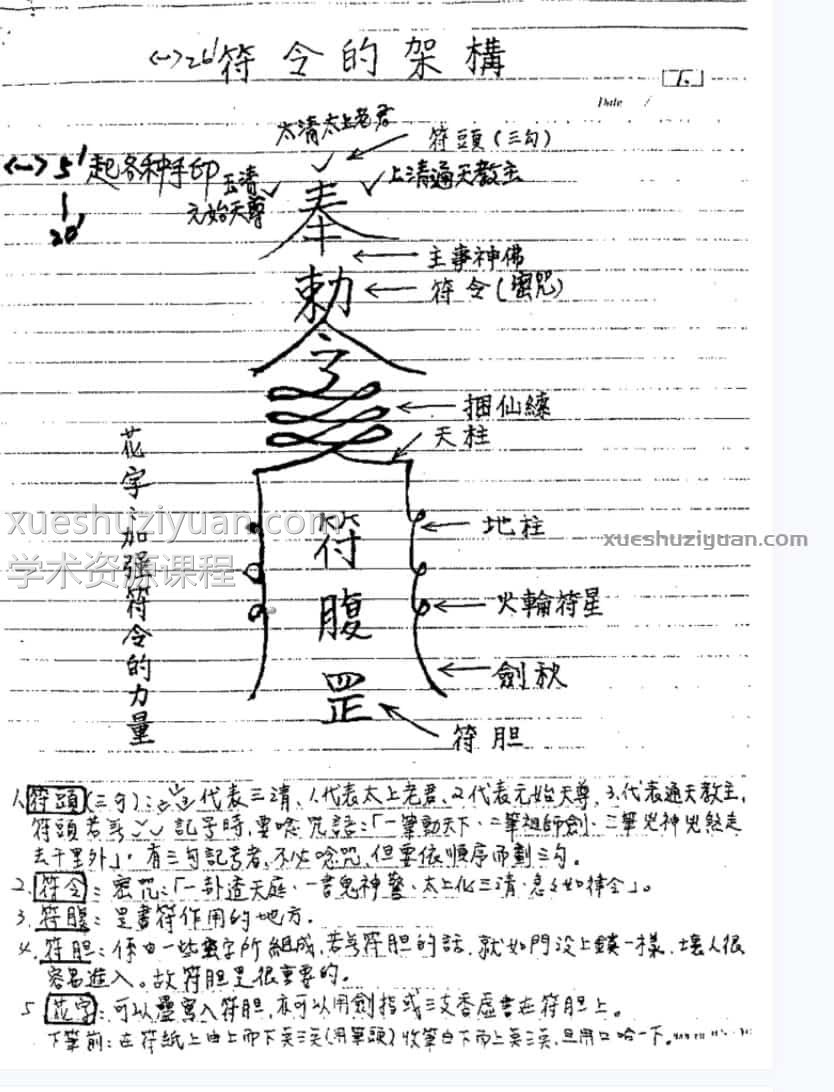 <一>26' 符令的架構
Date /
太清太上老君
符頭(三勾)
<一>5'起各种手印
|
20'
玉清
元始天尊
上清通天教主
奉
主事神佛
勅
符令(密咒)
令
捆仙練
天柱
花字:加強符令的力量
xueshuziyuan.com
学术资源课程
xueshuziyuan.com
符
地柱
腹
火輪符星
劍秋
罡
符胆
1.符頭(三勾):代表三清、1.代表太上老君、2.代表元始天尊、3.代表通天教主,
符頭若 記号時,要唸咒語:「一筆動天下、二筆祖師劍、三筆兇神兇煞走
去千里外」,有三勾記号者,不必唸咒,但要依順序而劃三勾。
2.符令:密咒:「一卦透天庭、一書鬼神驚、太上化三清、急々如律令」。
3.符腹:是書符作用的地方。
4.符胆:係由一些 字所組成,若無符胆的話,就如門没上鎖一樣,壞人很
容易進入。故符胆是很重要的。
5 花字:可以疊寫入符胆,亦可以用劍指或三支香虛書在符胆上。
下筆前:在符紙上由上而下 三 (用筆頭)收筆由下而上 三 ,且用口哈一下。